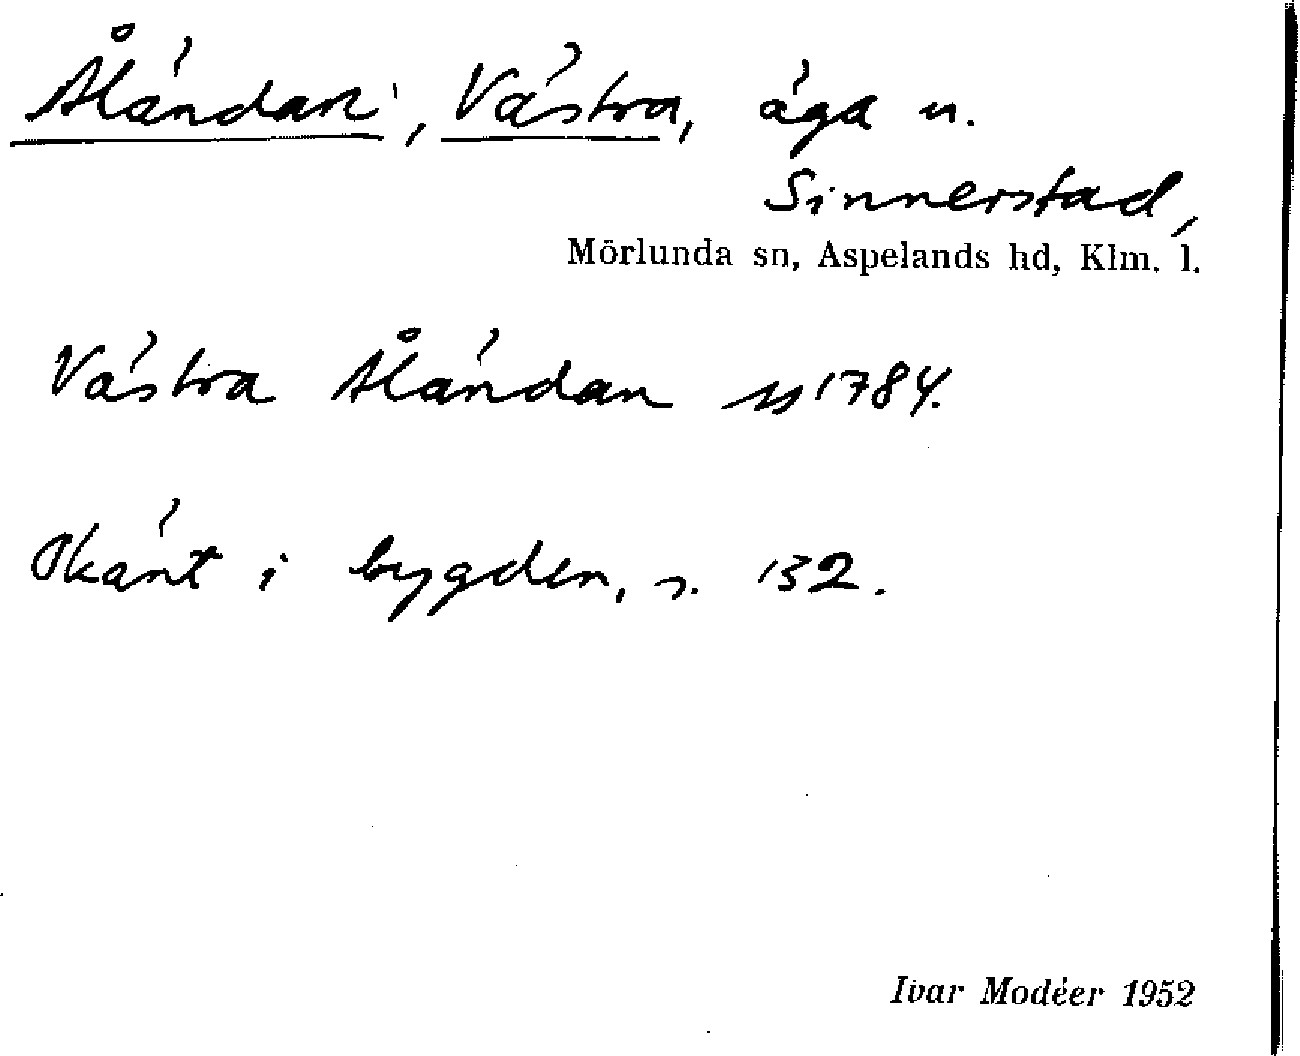 Åländan, Västra, äga u.
Sinnerstad,
Mörlunda sn, Aspelands hd, Klm. l.
Västra Åländan 1784.
Okänt i bygden, s. 132.
Ivar Modéer 1952